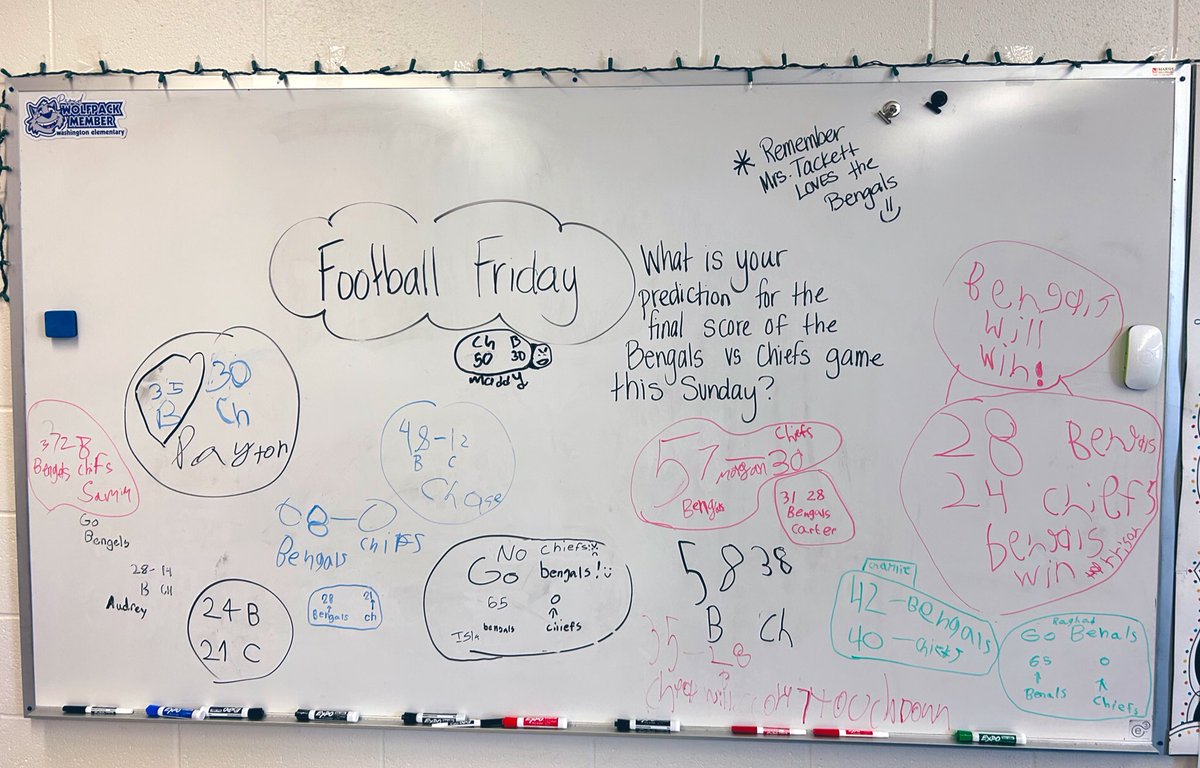 Proud
WOLFPACK
MEMBER
washington elementary
* Remember
Mrs. Tackett
LOVES the
Bengals
Football Friday
What is your
prediction for the
final score of the
Bengals vs Chiefs game
this Sunday?
Ch B
50 30
maddy
Bengals
will
win!
35 30
B Ch
Payton
Bengals chfs
Go
Bengels
28-14
B CH
Audrey
24 B
21 C
48-12
B C
Chase
Bengals chiefs
28 21
Bengals ch
No chiefs!
Go bengals!
65 0
bengals chiefs
Isla
Chiefs
57 - 30
morgan
Bengals
31 28
Bengals
Carter
58 38
B Ch
35-28
28 Bengals
24 chiefs
bengals
win
Charlie
42-Bengals
40-chiefs
Raghad
Go Benals
65 0
Benals Chiefs
EXPO
EXPO
EXPO